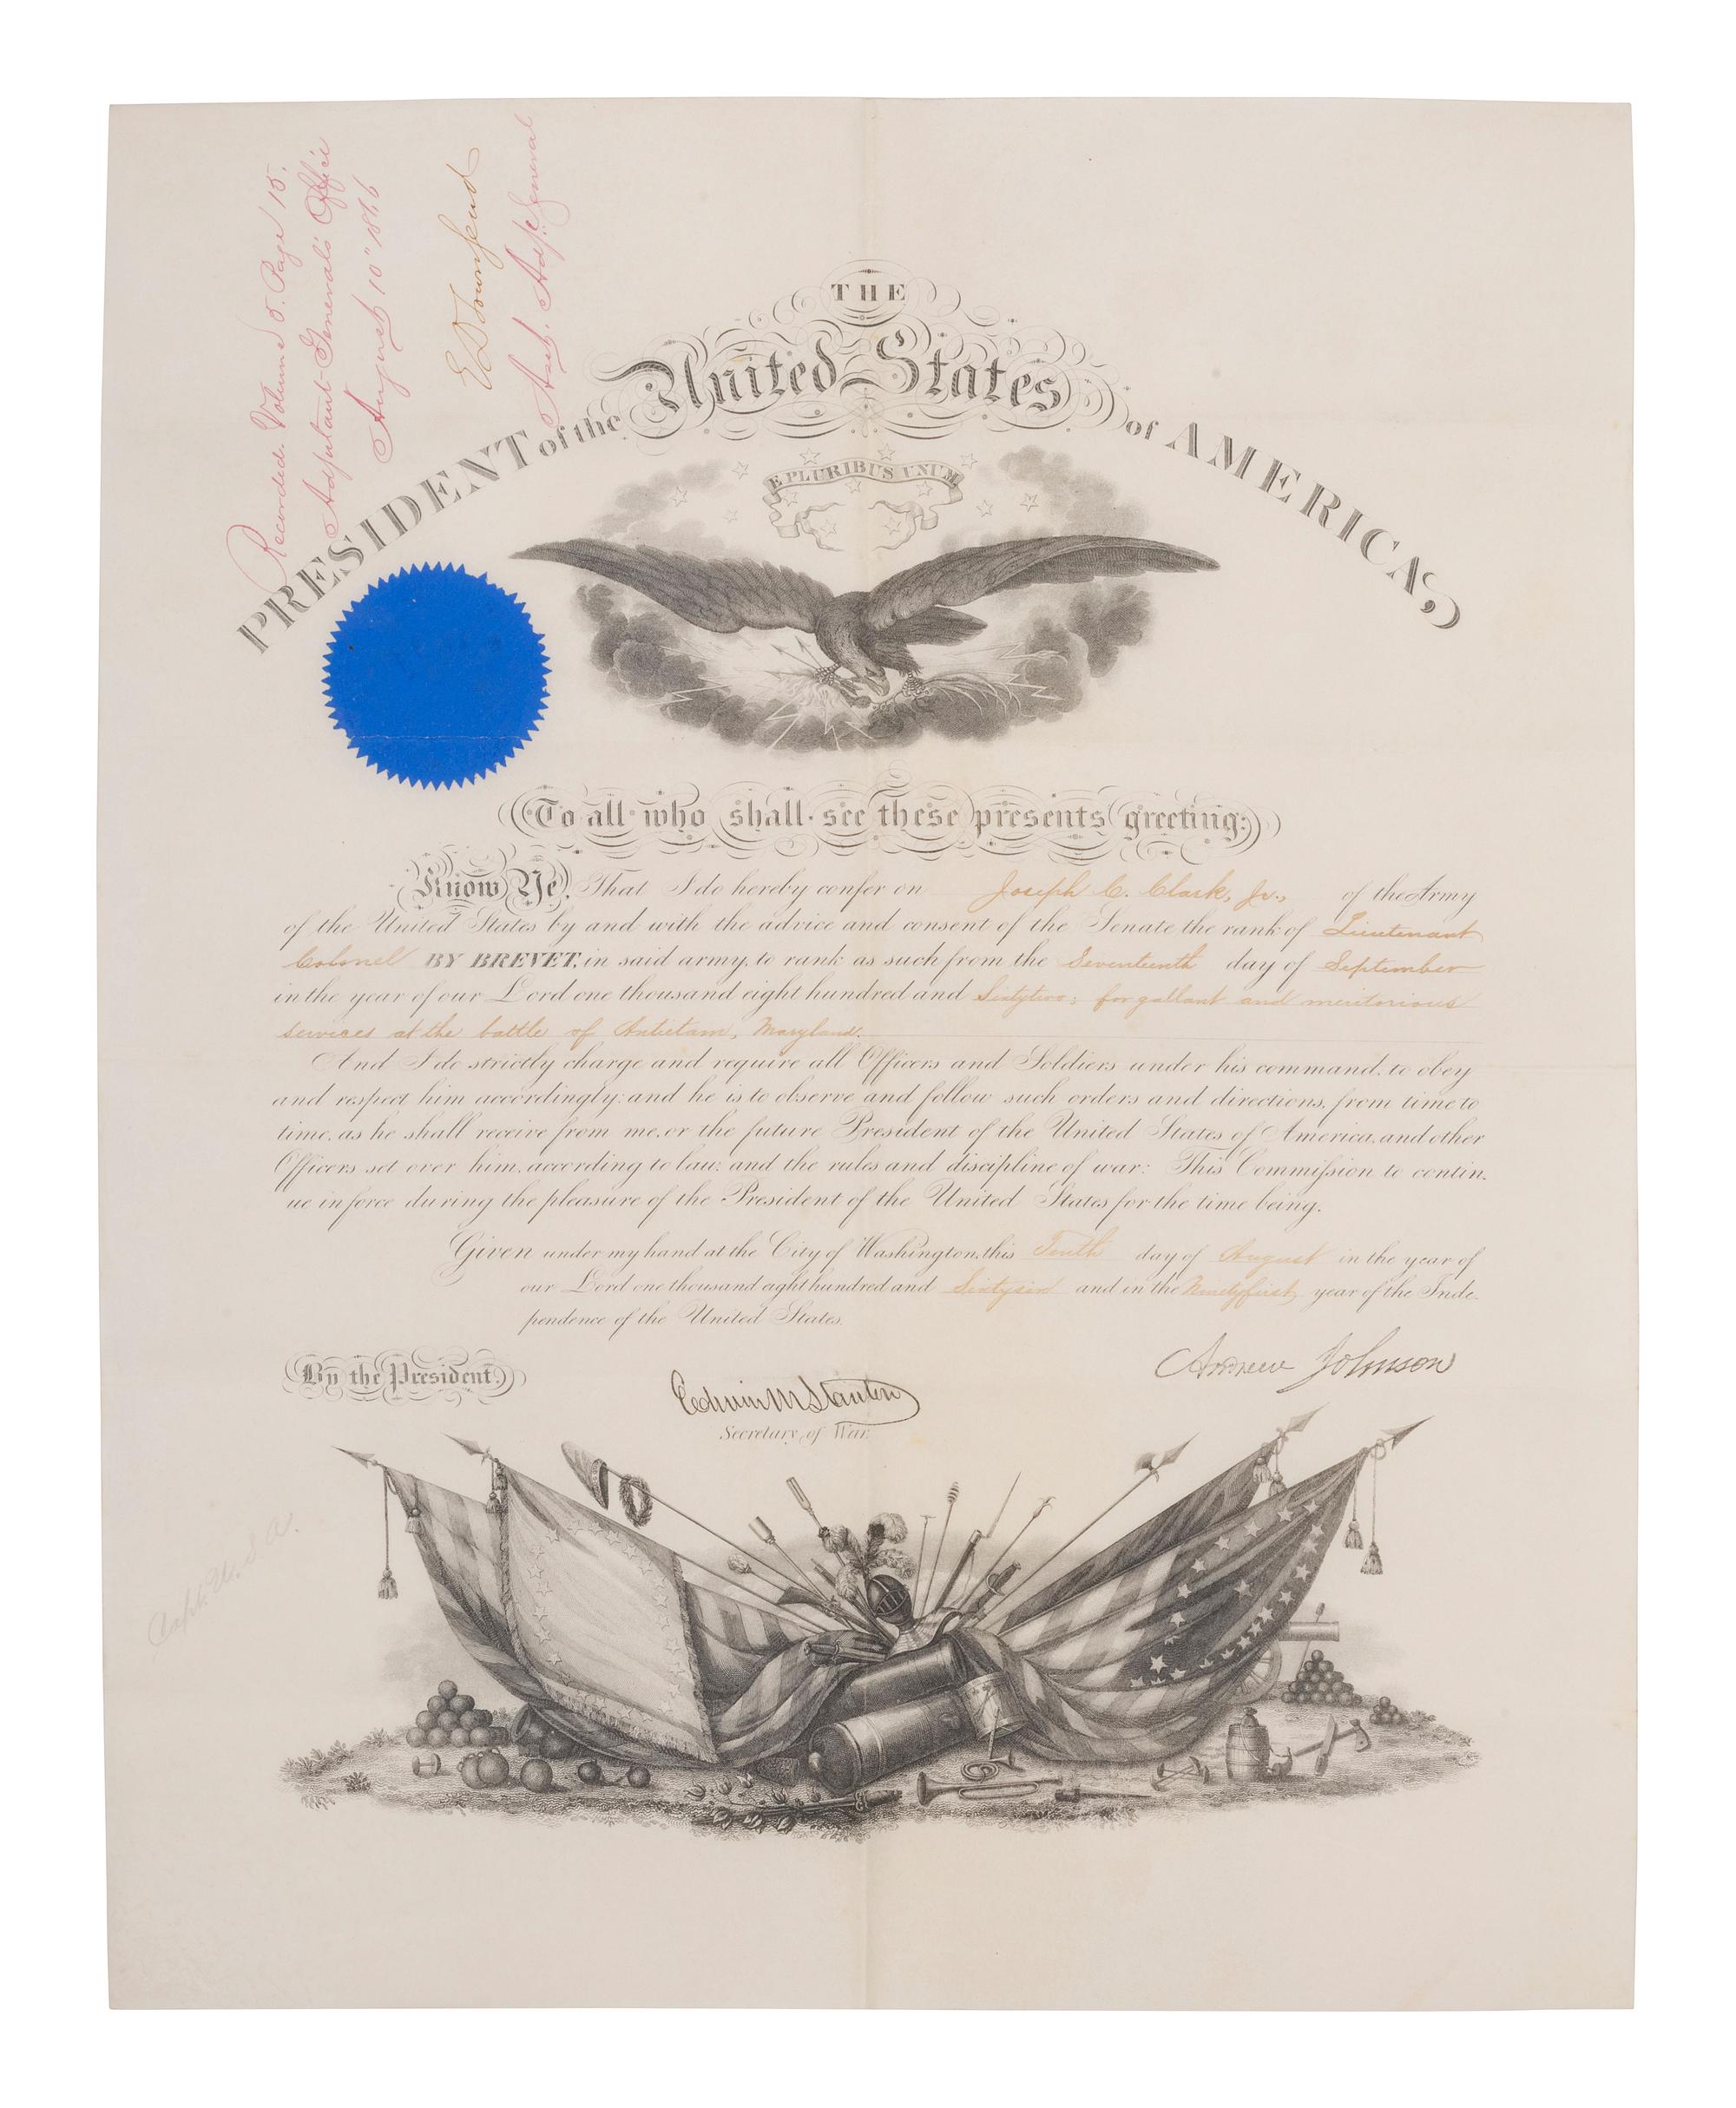 Recorded. Volume 8. Page 15.
Adjutant General's Office
August 10" 1866
E D Townsend
Asst. Adj. General
THE
United States
PRESIDENT of the of AMERICA,
E PLURIBUS UNUM
To all who shall see these presents greeting:
Know Ye, That I do hereby confer on Joseph C. Clark, Jr., of the Army
of the United States by and with the advice and consent of the Senate the rank of Lieutenant
Colonel BY BREVET, in said army, to rank as such from the Seventeenth day of September
in the year of our Lord one thousand eight hundred and Sixtytwo; for gallant and meritorious
services at the battle of Antietam, Maryland.
And I do strictly charge and require all Officers and Soldiers under his command, to obey
and respect him accordingly: and he is to observe and follow such orders and directions, from time to
time, as he shall receive from me, or the future President of the United States of America, and other
Officers set over him, according to law; and the rules and discipline of war: This Commission to contin-
ue in force during the pleasure of the President of the United States for the time being.
Given under my hand at the City of Washington, this Tenth day of August in the year of
our Lord one thousand eight hundred and Sixtysix and in the Ninetyfirst year of the Inde-
pendence of the United States.
By the President.
Andrew Johnson
Edwin M Stanton
Secretary of War.
Capt. U.S.A.